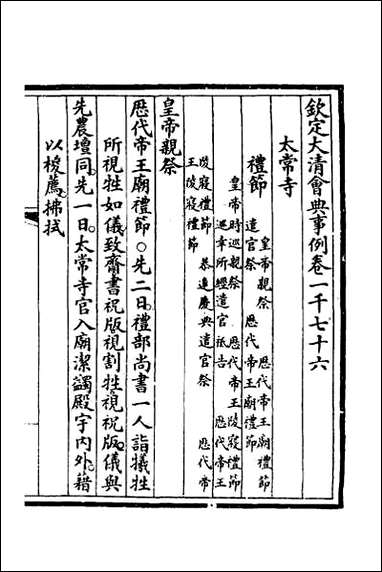 欽定大清會典事例卷一千七十六
太常寺
禮節
皇帝親祭 歷代帝王廟禮節
遣官祭 歷代帝王廟禮節
皇帝時巡親祭 歷代帝王陵寢禮節
巡幸所經遣官祗告 歷代帝王
陵寢禮節 恭逢慶典遣官祭 歷代帝
王陵寢禮節
皇帝親祭
歷代帝王廟禮節○先二日禮部尚書一人詣犧牲
所視牲如儀致齋書祝版視割牲視祝版儀與
先農壇同先一日太常寺官入廟潔蠲殿宇內外藉
以椶薦拂拭